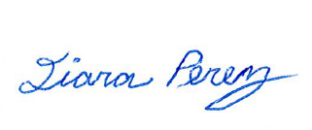 Kiara Perez